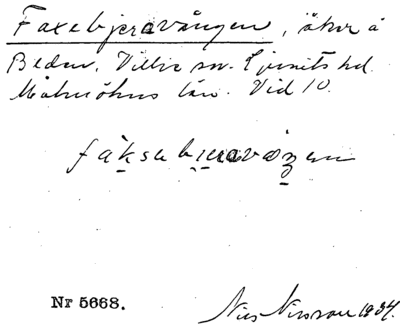 Faxebjeravången, åker å
Beden. Villie sn. Ljunits hd.
Malmöhus län. Vid 10.
fàksebjeravåŋen
Nr 5668.
Nils Nilsson 1934.